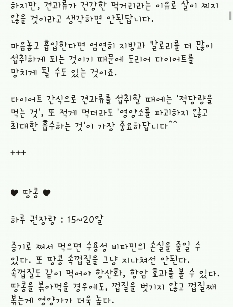 하지만, 견과류가 건강한 먹거리라는 이유로 살이 찌지
않을 것이라고 생각하면 안된답니다.
마음놓고 흡입한다면 엄연히 지방과 칼로리를 더 많이
섭취하게 되는 것이기 때문에 도리어 다이어트를
망치게 될 수도 있는 것이죠.
다이어트 간식으로 견과류를 섭취할 때에는 '적당량을
먹는 것', 또 적게 먹더라도 '영양소를 파괴하지 않고
최대한 흡수하는 것'이 가장 중요하답니다^^
+++
♥ 땅콩 ♥
하루 권장량 : 15~20알
증기로 쪄서 먹으면 수용성 비타민의 손실을 줄일 수
있다. 또 땅콩 속껍질을 그냥 지나쳐선 안된다.
속껍질도 같이 먹어야 항산화, 항암 효과를 볼 수 있다.
땅콩을 볶아먹을 경우에도, 껍질을 벗기지 않고 껍질째
볶는게 영양가가 더욱 높다.